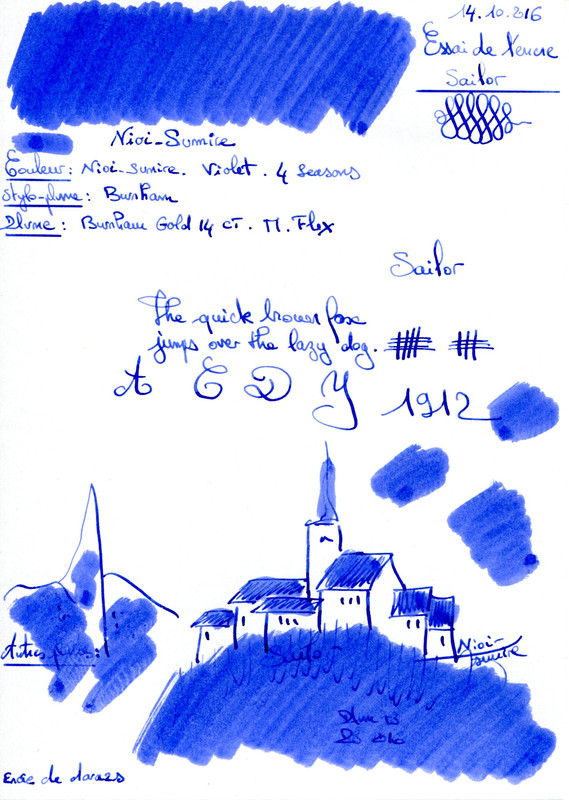 14.10.2016
Essai de l'encre
Sailor
Nioi-Sumire
Couleur: Nioi-sumire. Violet. 4 seasons
Stylo-plume: Burnham
Plume: Burnham Gold 14 ct. M. Flex
Sailor
The quick brown fox
jumps over the lazy dog.
A E D Y 1912
Autres
Sailor
Nioi-
sumire